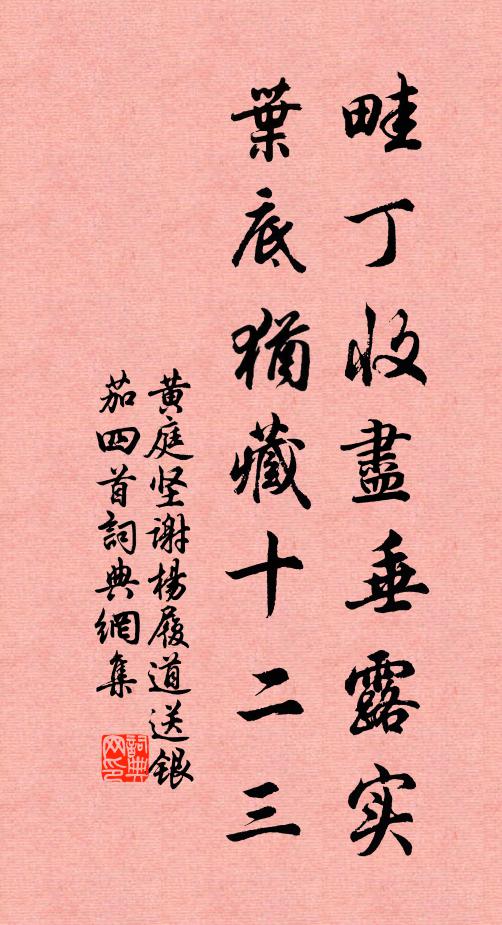 畦丁收盡垂露实
葉底猶藏十二三
黄庭坚谢楊履道送銀
茄四首詞典網集
詞典网印